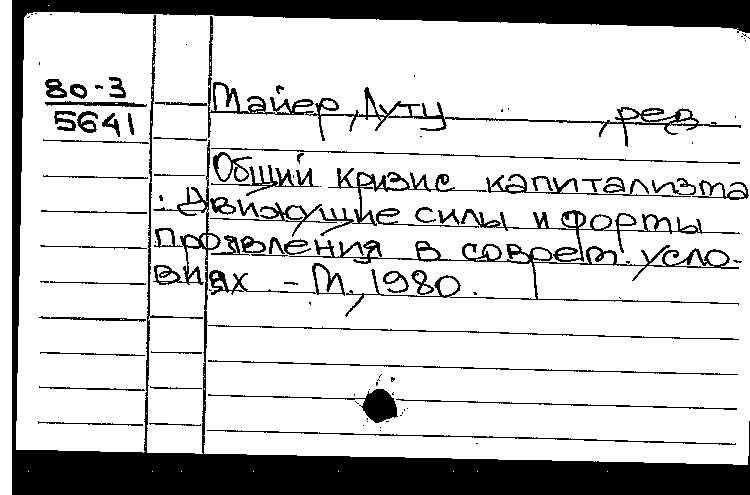 80-3
5641
Майер, Лутц , ред.
Общий кризис капитализма
: Движущие силы и формы
проявления в соврем. усло-
виях. - М., 1980.